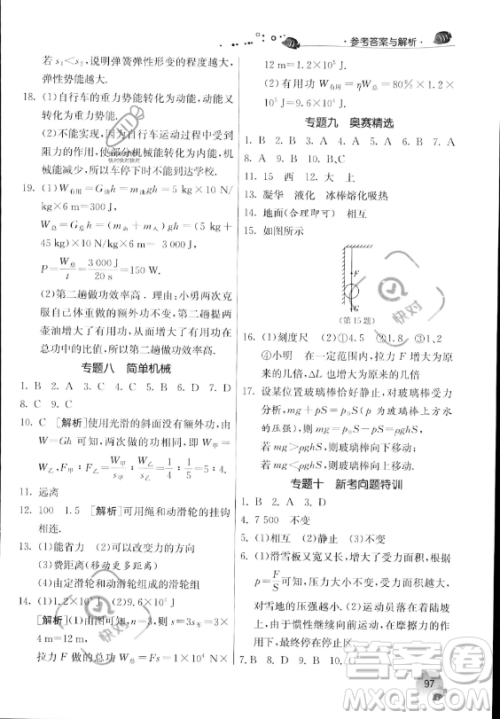 ·参考答案与解析·
若 s₁<s₂,说明弹簧弹性形变的程度越大,
弹性势能越大.
18. (1)自行车的重力势能转化为动能,动能
又转化为重力势能.
(2)不能,因为自行车运动过程中要受到
阻力的作用,使部分机械能转化为内能,机
械能减少,所以车停下时不能到达
19. (1)W有用=G油h=m油gh=5 kg×10 N/
kg×6 m=300 J,
W总=G总h=(m油+m人)gh=(5 kg+
45 kg)×10 N/kg×6 m=3 000 J
P=W总/t=3 000 J/20 s=150 W.
(2)第二趟做功效率高. 小勇两次克服
自己体重做的额外功不变,第二趟提两
壶油增大了有用功,从而增大了有用功在
总功中的比值,因此第二趟做功效率高.
专题八 简单机械
1. B 2. A 3. C 4. B 5. B 6. D 7. D
8. C 9. C
10. C [解析]使用光滑的斜面没有额外功,由
W=Gh 可知,两次做功相等.由 W=Fs
可知,F甲∶F乙=W甲/s甲∶W乙/s乙=
11. 远离
12. 100 1.5 [解析]可用绳和动滑轮的挂钩
相连.
13. (1)能省力 (2)可以改变力的方向
(3)费距离(移动更多距离)
(4)由定滑轮和动滑轮组成的滑轮组
14. (1)1.2×10⁵ J (2)9.6×10⁴ J
[解析](1)由图可知,n=3,s=3×
4 m=12 m,
拉力 F 做的总功 W总=Fs=1×10⁴ N×
12 m=1.2×10⁵ J.
(2)有用功 W有用=ηW总=80%×1.2×
10⁵ J=9.6×10⁴ J.
专题九 奥赛精选
1. B 2. B 3. C 4. A 5. A 6. B 7. A
8. A 9. B 10. B 11. B
12. 15 西 大 上
13. 凝华 液化 冰棒熔化吸热
14. 地面(合理即可) 相当
15. 如图所示
F
G
(第15题)
16. (1)刻度尺 (2)①4.5 ②1.5 ③1.8
④小明 在一定范围内,拉力 F 增大为原
来的几倍,ΔL 也增大为原来的几倍
17. 设某位置玻璃棒恰好静止,对玻璃棒受力
分析,mg+pS=p₀S(p 为玻璃棒上表面
的压强),又 p₀=p+ρghS,
因此 mg=ρghS,
若 mg>ρghS,则玻璃棒向下移动;
若 mg<ρghS,则玻璃棒向上移动.
专题十 新考向题特训
1. B 2. A 3. D
4. 7 500 不变
5. (1)相互 (2)静止 (3)不变
6. (1)滑雪板又宽又长,增大了受力面积,由
p=F/S 可知,压力不变时,
对雪地的压强越小. (2)运动员能沿着陡坡
上的,由于惯性继续向前运动,在摩擦力的
作用下,最后停在缓冲区.
7. B 8. C 9. C 10. D 11. D
97